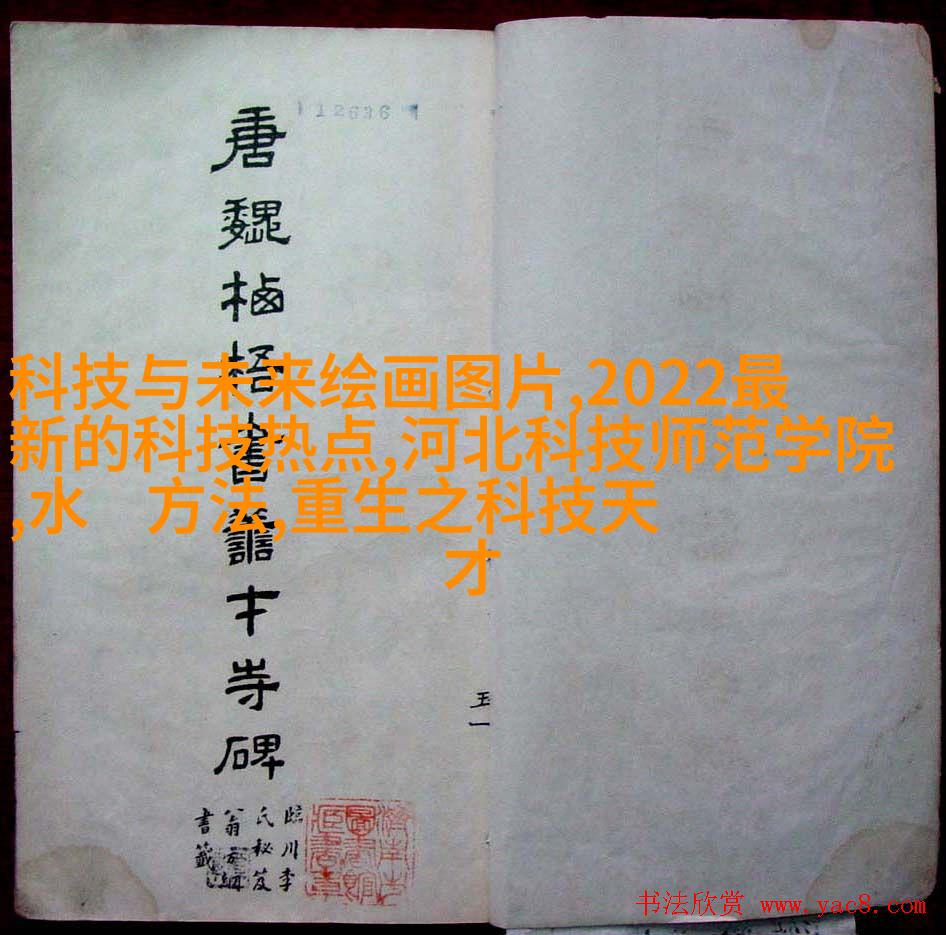 12636
唐魏栖梧書譱才寺碑
臨川李
氏秘笈
翁方綱
書籤
濟南市
圖書館
藏書章
科技与未来绘画图片,2022最
新的科技热点,河北科技师范学院
,水 方法,重生之科技天
才
书法欣赏 www.yac8.com